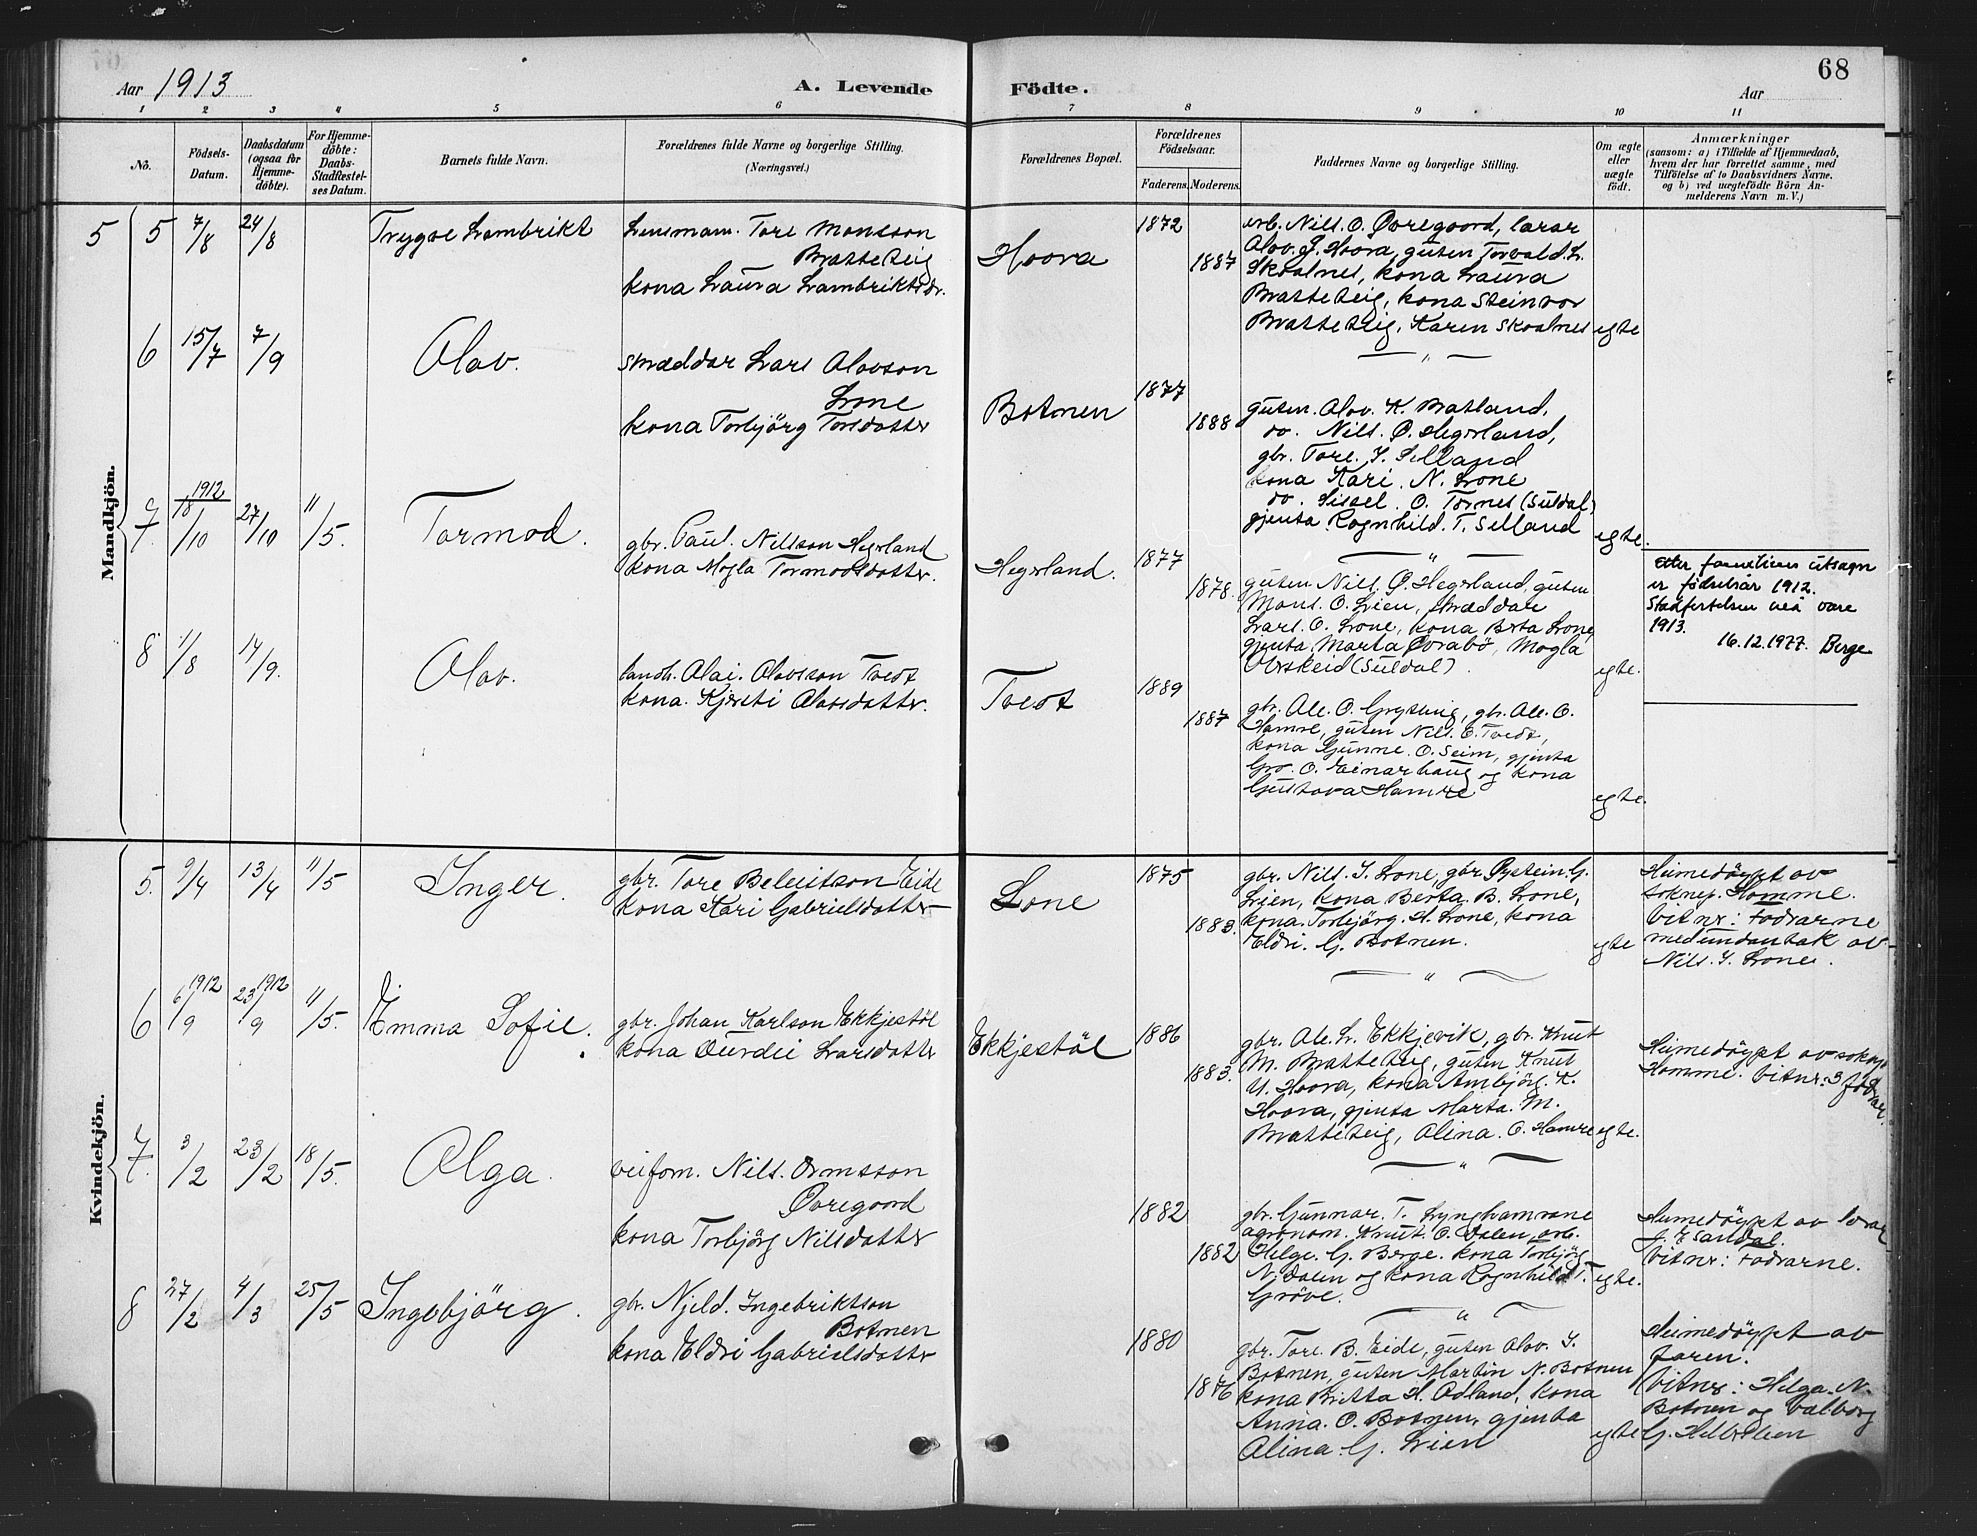 68
Aar 1913
A. Levende
Födte.
Aar
1 2 3 4 5 6 7 8 9 10 11
No.
Födsels-
Datum.
Daabsdatum
(ogsaa for
Hjemme-
döbte).
For Hjemme-
döbte:
Daabs-
Stadfæstel-
ses Datum.
Barnets fulde Navn.
Forældrenes fulde Navne og borgerlige Stilling.
(Næringsvei.)
Forældrenes Bopæl.
Forældrenes
Födselsaar.
Faderens.
Moderens.
Faddernes Navne og borgerlige Stilling.
Om ægte
eller
uægte
født.
Anmærkninger
(saasom: a) i Tilfælde af Hjemmedaab,
hvem der har forrettet samme, med
Tilföielse af to Daabsvidners Navne.
og b) ved uægtefödte Börn An-
melderens Navn m.V.)
Mandkjön.
5
5 7/8 24/8
Trygve Lambrikt
Lensmam. Tore Monsson
Bratteteig
kona Laura Lambriktsdr.
Hoora
1872
1887
Nils. O. Øvregoord, lærar
Olov. J. Hoora, guten Torvald. L.
Skoalnes, kona Laura
Bratteteig, kona Steinvor
Bratteteig, Karen Skoalnes
egte
6 15/7 7/9
Olav.
skræddar Lars Olovson
Lone
kona Torbjörg Torsdotter
Botnen
1877
1888
— " —
guten. Olov. K. Bratland,
do. Nils. O. Hegrland,
gbr. Tore. I. Selland
kona Kari. N. Lone
do. Sissel. O. Tornes (Suldal)
gjenta Rognhild. T. Selland
egte.
7. 1912 18/10 27/10 11/5.
Tormod.
gbr. Paul. Nilsson Hegrland
kona Mogla Tormodsdotter.
Hegrland.
1877
1878.
— " —
guten Nils. O. Hegrland, guten
Mons. O. Lien, skræddar
Lars. O. Lone, kona Brta Lone,
gjenta Marta Øvrabö, Mogla
(Suldal).
egte.
etter familiens utsagn
er fødselsår 1912.
Stadfestelsen må være
1913.
16.12.1977. Berge
8 1/8 14/9.
Olav.
landh. Olai. Olavsson Tvedt
kona. Kjersti Olavsdotter.
Tvedt
1889
1887
gbr. Ole. O. Grytning, gbr. Ole. O.
Hamre, guten Nils. E. Tvedt,
kona Gunne. O. Seim, gjenta
Gro. O. Einarhaug og kona
Gustava Hamre
egte.
Kvindekjön.
5. 9/4 13/4 11/5
Inger.
gbr. Tore Beleitsson Eide
kona Kari Gabrielsdotter
Lone
1875
1883.
gbr. Nils. I. Lone, gbr Øystein. G.
Lien, kona Berta. B. Lone,
kona. Torbjörg. H. Lone, kona
Eldri. G. Botnen.
egte
Heimedöypt av
soknep. Homme.
Vitner: Fadrarne
med undantak av
Nils. I. Lone.
6 1912 6/9 1912 23/9 11/5.
Emma Sofie.
gbr. Johan Karlson Ekkjestöl
kona Durdei Larsdotter
Ekkjestöl
1886
1883.
— " —
gbr. Ole. L. Ekkjevik, gbr. Knut
M. Bratteteig, guten Knut
U. Hoora, kona Ambjörg. K.
Hoora, gjenta Marta. M.
Bratteteig, Olina. O. Hamre
egte.
Heimedöypt av soknp.
Homme. Vitnr: 3 fodrar.
7. 3/2 23/2 18/5.
Olga.
veifom. Nils. Ormsson
Øvregoord
kona Torbjörg Nilsdotter
1882
1882
— " —
gbr. Gunnar. T. Lynghamrane
agronom. Knut. O. Dalen,
Helge. G. Berge. kona Torbjörg
N. Dalen og kona Rognhild T.
Gröve.
egte.
Heimedöypt av lærar
Vitnr: Fadrarne.
8 27/2 4/3 25/5
Ingebjörg.
gbr. Njeld. Ingebriktson
Botnen
kona Eldri Gabrielsdotter
1880
1876
— " —
gbr. Tore. B. Eide, guten Olov. I.
Botnen, guten Martin N. Botnen
kona Britta H. Odland, kona
Anna. O. Botnen, gjenta
Olina. G. Lien
egte
Heimedöypt av
faren.
Vitnr: Helga. N.
Botnen og Valborg
G.